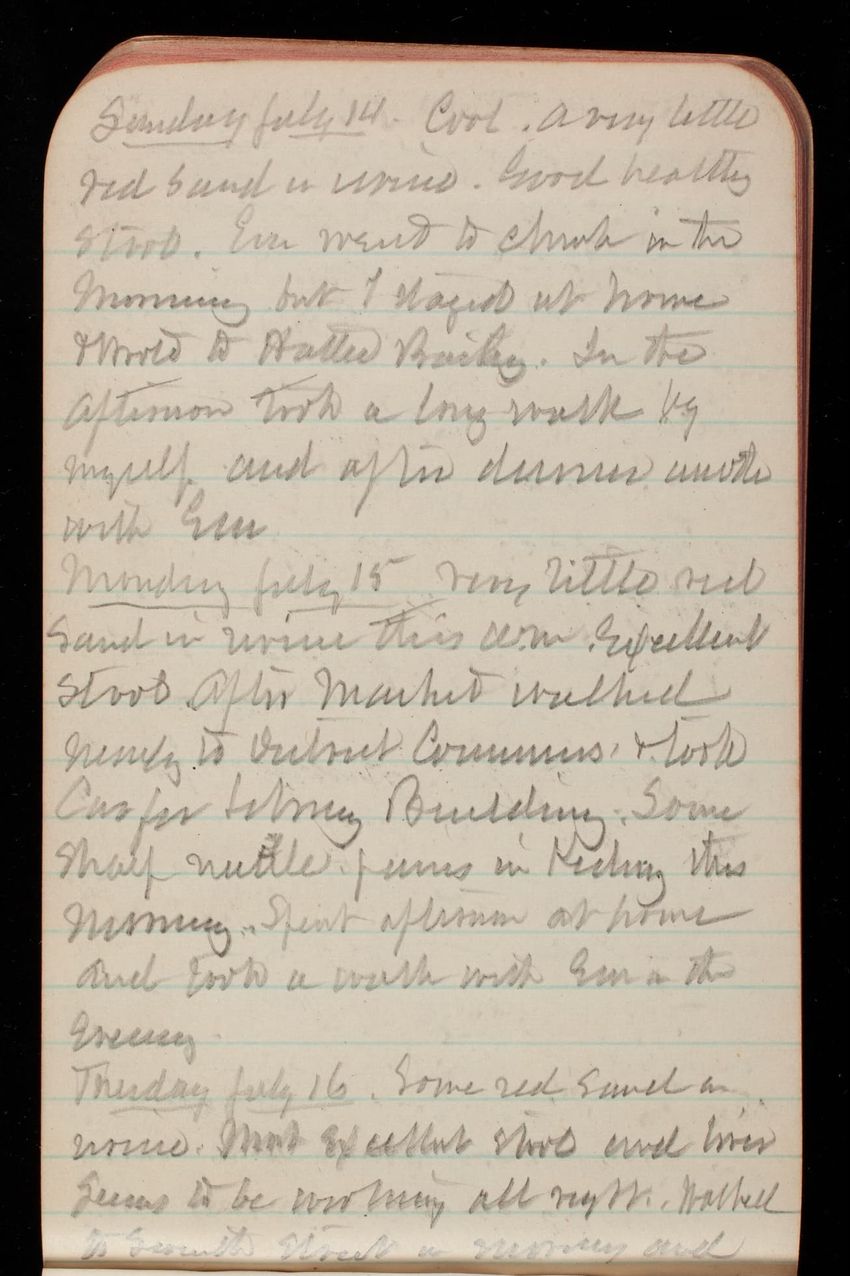 Sunday July 14. Cool. A very little
red sand in urine. Good healthy
stool. Em went to church in the
Morning but I stayed at home
& wrote to Hattie Bailey. In the
afternoon took a long walk by
myself and after dinner another
with Em
Monday July 15 very little red
Sand in urine this a.m. Excellent
Stool. After Market walked
nearly to District Commrs. & took
Car for Library Building. Some
sharp needle pains in Kidney this
Morning. Spent afternoon at home
and took a walk with Em in the
Evening
Tuesday July 16. Some red sand in
urine. Most Excellent stool and liver
seems to be working all right. Walked
to Seventh Street in morning and